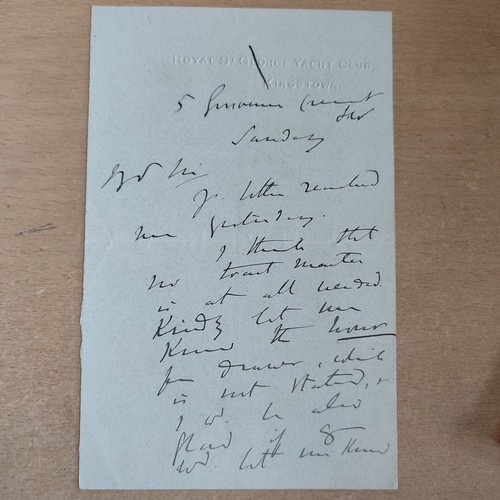 ROYAL ST GEORGE YACHT CLUB,
KINGSTOWN.
5 Grosvenor Crescent
SW
Sunday
My d Sir
Yr letter reached
me yesterday.
I think that
no toast master
is at all needed.
Kindly let me
Know the hour
for dinner, which
is not stated, &
I wd. be also
glad if
wd. let me Know